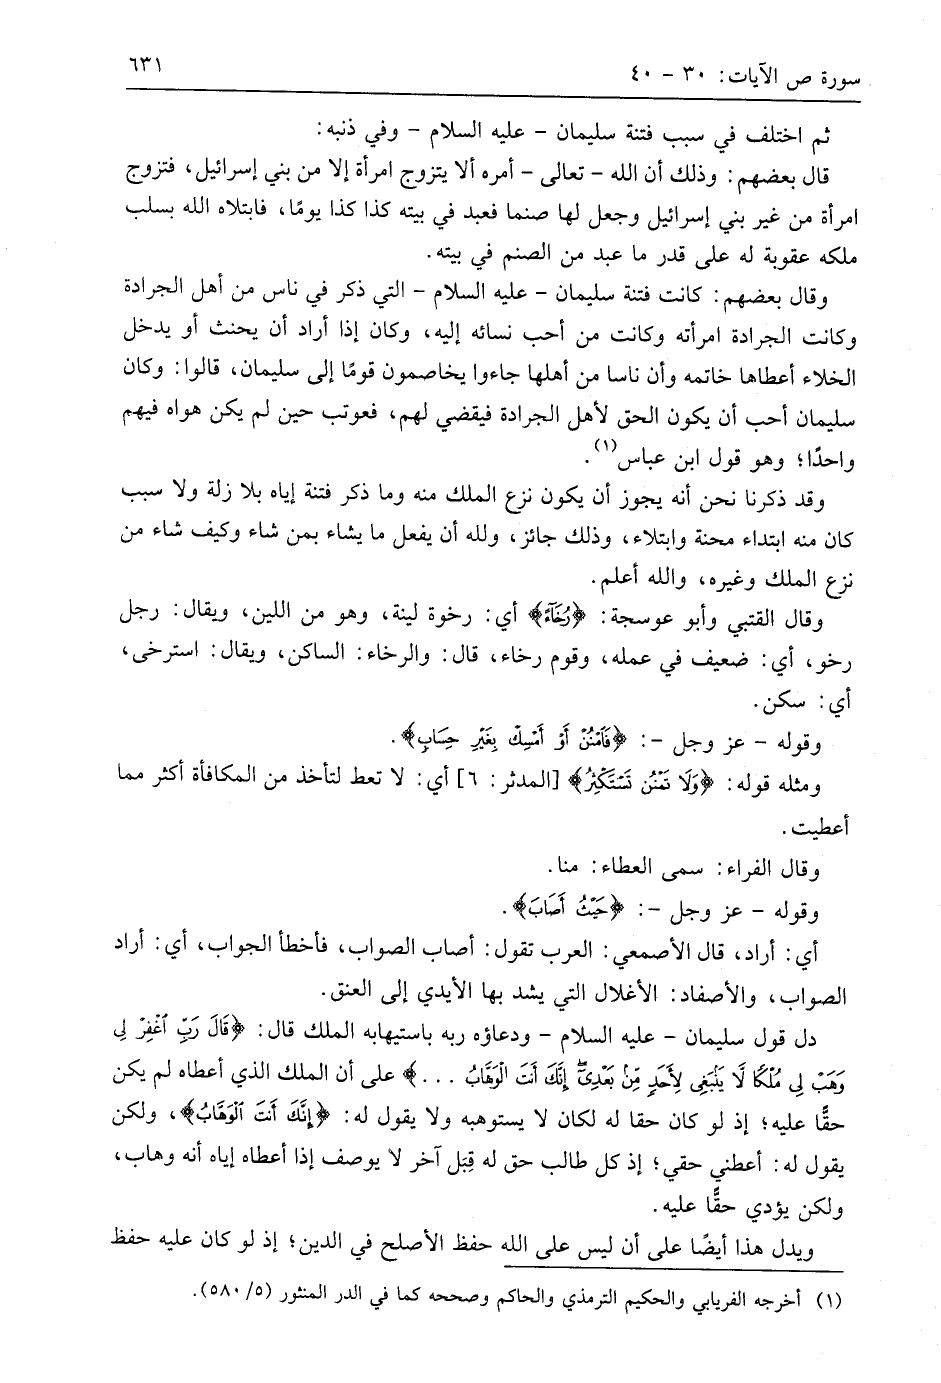 سورة ص الآيات: ٣٠ - ٤٠
٦٣١
ثم اختلف في سبب فتنة سليمان - عليه السلام - وفي ذنبه:
قال بعضهم: وذلك أن الله - تعالى - أمره ألا يتزوج امرأة إلا من بني إسرائيل، فتزوج
امرأة من غير بني إسرائيل وجعل لها صنما فعبد في بيته كذا كذا يومًا، فابتلاه الله بسلب
ملكه عقوبة له على قدر ما عبد من الصنم في بيته.
وقال بعضهم: كانت فتنة سليمان - عليه السلام - التي ذكر في ناس من أهل الجرادة
وكانت الجرادة امرأته وكانت من أحب نسائه إليه، وكان إذا أراد أن يحنث أو يدخل
الخلاء أعطاها خاتمه وأن ناسا من أهلها جاءوا يخاصمون قومًا إلى سليمان، قالوا: وكان
سليمان أحب أن يكون الحق لأهل الجرادة فيقضي لهم، فعوتب حين لم يكن هواه فيهم
واحدًا؛ وهو قول ابن عباس(١).
وقد ذكرنا نحن أنه يجوز أن يكون نزع الملك منه وما ذكر فتنة إياه بلا زلة ولا سبب
كان منه ابتداء محنة وابتلاء، وذلك جائز، ولله أن يفعل ما يشاء بمن شاء وكيف شاء من
نزع الملك وغيره، والله أعلم.
وقال القتبي وأبو عوسجة: ﴿رُخَآءً﴾ أي: رخوة لينة، وهو من اللين، ويقال: رجل
رخو، أي: ضعيف في عمله، وقوم رخاء، قال: والرخاء: الساكن، ويقال: استرخى،
أي: سكن.
وقوله - عز وجل -: ﴿فَٱمْنُنْ أَوْ أَمْسِكْ بِغَيْرِ حِسَابٍ﴾.
ومثله قوله: ﴿وَلَا تَمْنُن تَسْتَكْثِرُ﴾ [المدثر: ٦] أي: لا تعط لتأخذ من المكافأة أكثر مما
أعطيت.
وقال الفراء: سمى العطاء: منا.
وقوله - عز وجل -: ﴿حَيْثُ أَصَابَ﴾.
أي: أراد، قال الأصمعي: العرب تقول: أصاب الصواب، فأخطأ الجواب، أي: أراد
الصواب، والأصفاد: الأغلال التي يشد بها الأيدي إلى العنق.
دل قول سليمان - عليه السلام - ودعاؤه ربه باستيهابه الملك قال: ﴿قَالَ رَبِّ ٱغْفِرْ لِى
وَهَبْ لِى مُلْكًا لَّا يَنۢبَغِى لِأَحَدٍ مِّنۢ بَعْدِىٓ إِنَّكَ أَنتَ ٱلْوَهَّابُ ...﴾ على أن الملك الذي أعطاه لم يكن
حقًّا عليه؛ إذ لو كان حقا له لكان لا يستوهبه ولا يقول له: ﴿إِنَّكَ أَنتَ ٱلْوَهَّابُ﴾، ولكن
يقول له: أعطني حقي؛ إذ كل طالب حق له قِبَل آخر لا يوصف إذا أعطاه إياه أنه وهاب،
ولكن يؤدي حقًّا عليه.
ويدل هذا أيضًا على أن ليس على الله حفظ الأصلح في الدين؛ إذ لو كان عليه حفظ
(١) أخرجه الفريابي والحكيم الترمذي والحاكم وصححه كما في الدر المنثور (٥/ ٥٨٠).